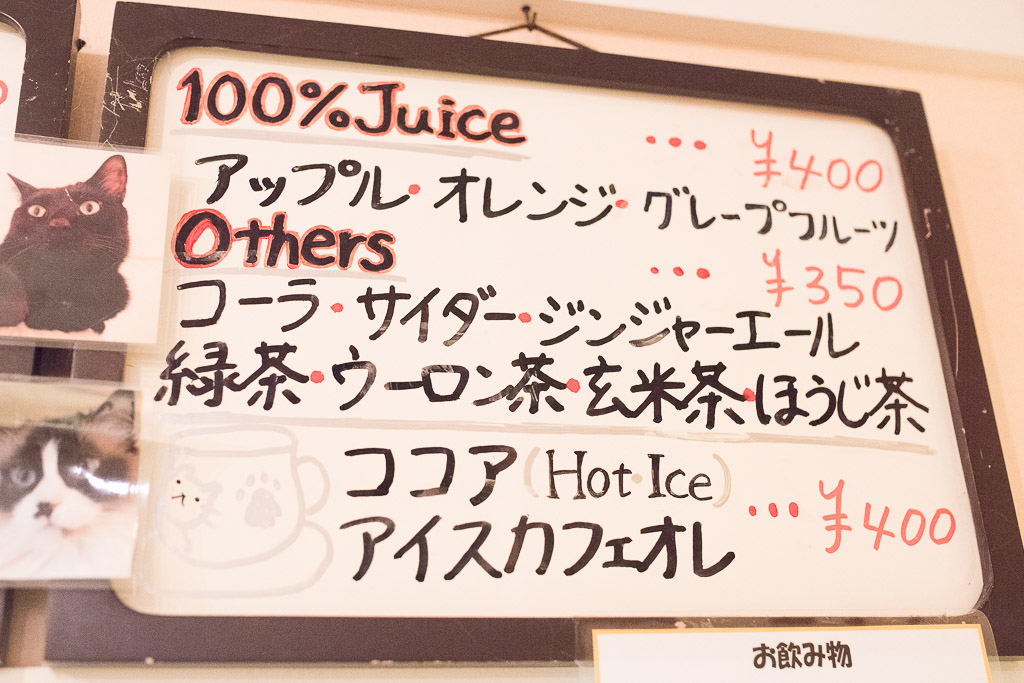 100%Juice ... ¥400
アップル・オレンジ・グレープフルーツ
Others ... ¥350
コーラ・サイダー・ジンジャーエール
緑茶・ウーロン茶・玄米茶・ほうじ茶
ココア(Hot・Ice)
アイスカフェオレ ... ¥400
お飲み物